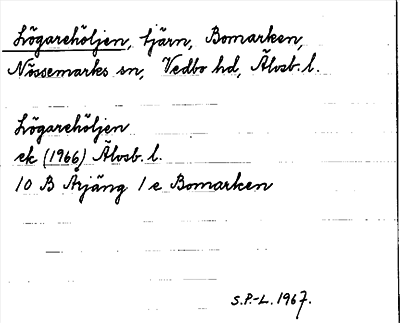 Högarehöljen, tjärn, Bomarken,
Nössemarks sn, Vedbo hd, Älvsb. l.
Högarehöljen
ek (1966) Älvsb. l.
10 B Årjäng 1 e Bomarken
S.P.-L. 1967.